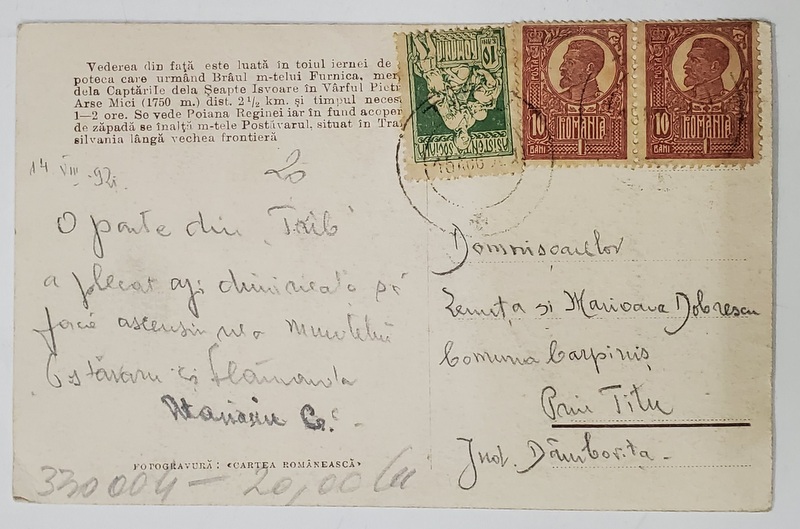 Vederea din față este luată în toiul iernei de
poteca care urmând Brâul m-telui Furnica, mer
dela Captările dela Șeapte Isvoare în Vârful Pietr
Arse Mici (1750 m.) dist. 2 1/2 km. și timpul neces
1—2 ore. Se vede Poiana Reginei iar în fund acoper
de zăpadă se înalță m-tele Postăvarul, situat în Tra
silvania lângă vechea frontieră
10
ROMANIA
ASISTENȚA
SOCIALA
POSTA
10
ROMANIA
BANI
1
POSTA
10
ROMANIA
BANI
1
14 VIII 92
20
O parte din "Trib"
a plecat azi dimineață să
facă ascensiunea muntelui
Manasiu G.
Domnișoarelor
Lenuța și Marioara Dobrescu
Comuna Carpiniș
Prin Titu
Jud. Dâmbovița -
FOTOGRAVURĂ: «CARTEA ROMÂNEASCĂ»
330004 — 20,00 lei